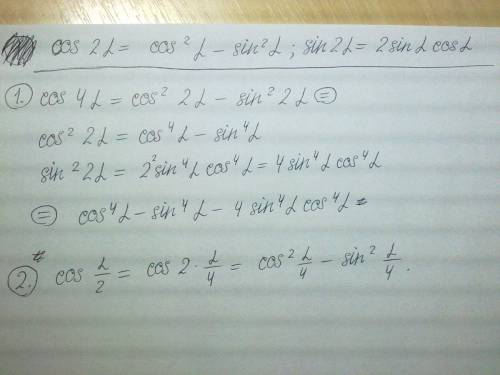 cos 2α = cos² α – sin² α ; sin 2α = 2 sin α cos α
1. cos 4α = cos² 2α – sin² 2α ⊜
cos² 2α = cos⁴ α – sin⁴ α
sin² 2α = 2² sin⁴ α cos⁴ α = 4 sin⁴ α cos⁴ α
⊜ cos⁴ α – sin⁴ α – 4 sin⁴ α cos⁴ α
2. cos α/2 = cos 2 · α/4 = cos² α/4 – sin² α/4 .